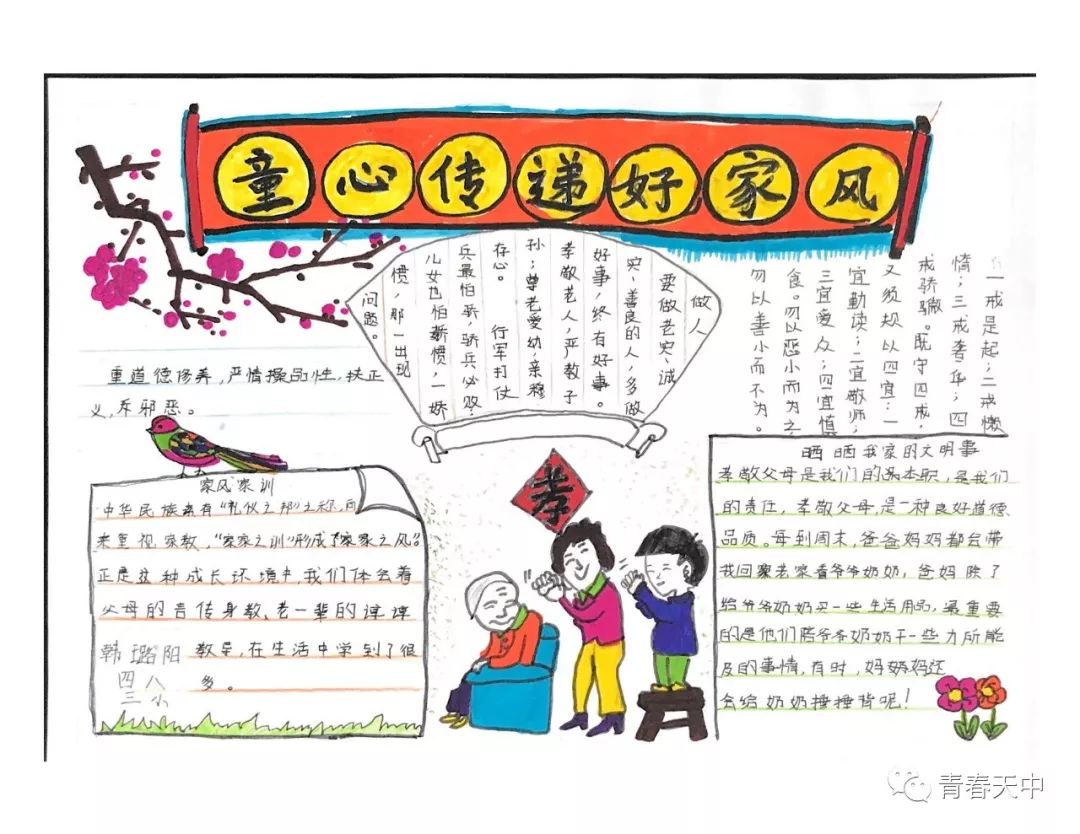 童心传递好家风
做人
要做老实、诚
实、善良的人,多做
好事,终有好事。
孝敬老人,严教子
孙;尊老爱幼,亲穆
存心。 行军打仗
兵最怕骄,骄兵必败;
儿女也怕娇惯,一娇
惯,那一出现
问题。
一戒是起;二戒懒
惰;三戒奢华;四
戒骄傲。既守四戒,
又须规以四宜:一
宜勤读;二宜敬师;
三宜爱众;四宜慎
食。勿以恶小而为之,
勿以善小而不为。
重道德修养,严情操品性,扶正
义,斥邪恶。
家风家训
中华民族素有“礼仪之邦”之称,向
来重视家教,“家家之训”形成了“家家之风”。
正是这种成长环境中,我们体会着
父母的言传身教、老一辈的谆谆
教导,在生活中学到了很
多。
韩璐阳
四八
三小
孝
晒晒我家的文明事
孝敬父母是我们的基本职,是我们
的责任,孝敬父母,是一种良好道德
品质。每到周末,爸爸妈妈都会带
我回老家看爷爷奶奶,爸妈除了
给爷爷奶奶买一些生活用品,最重要
的是他们陪爷爷奶奶干一些力所能
及的事情,有时,妈妈还
会给奶奶捶捶背呢!
青春天中